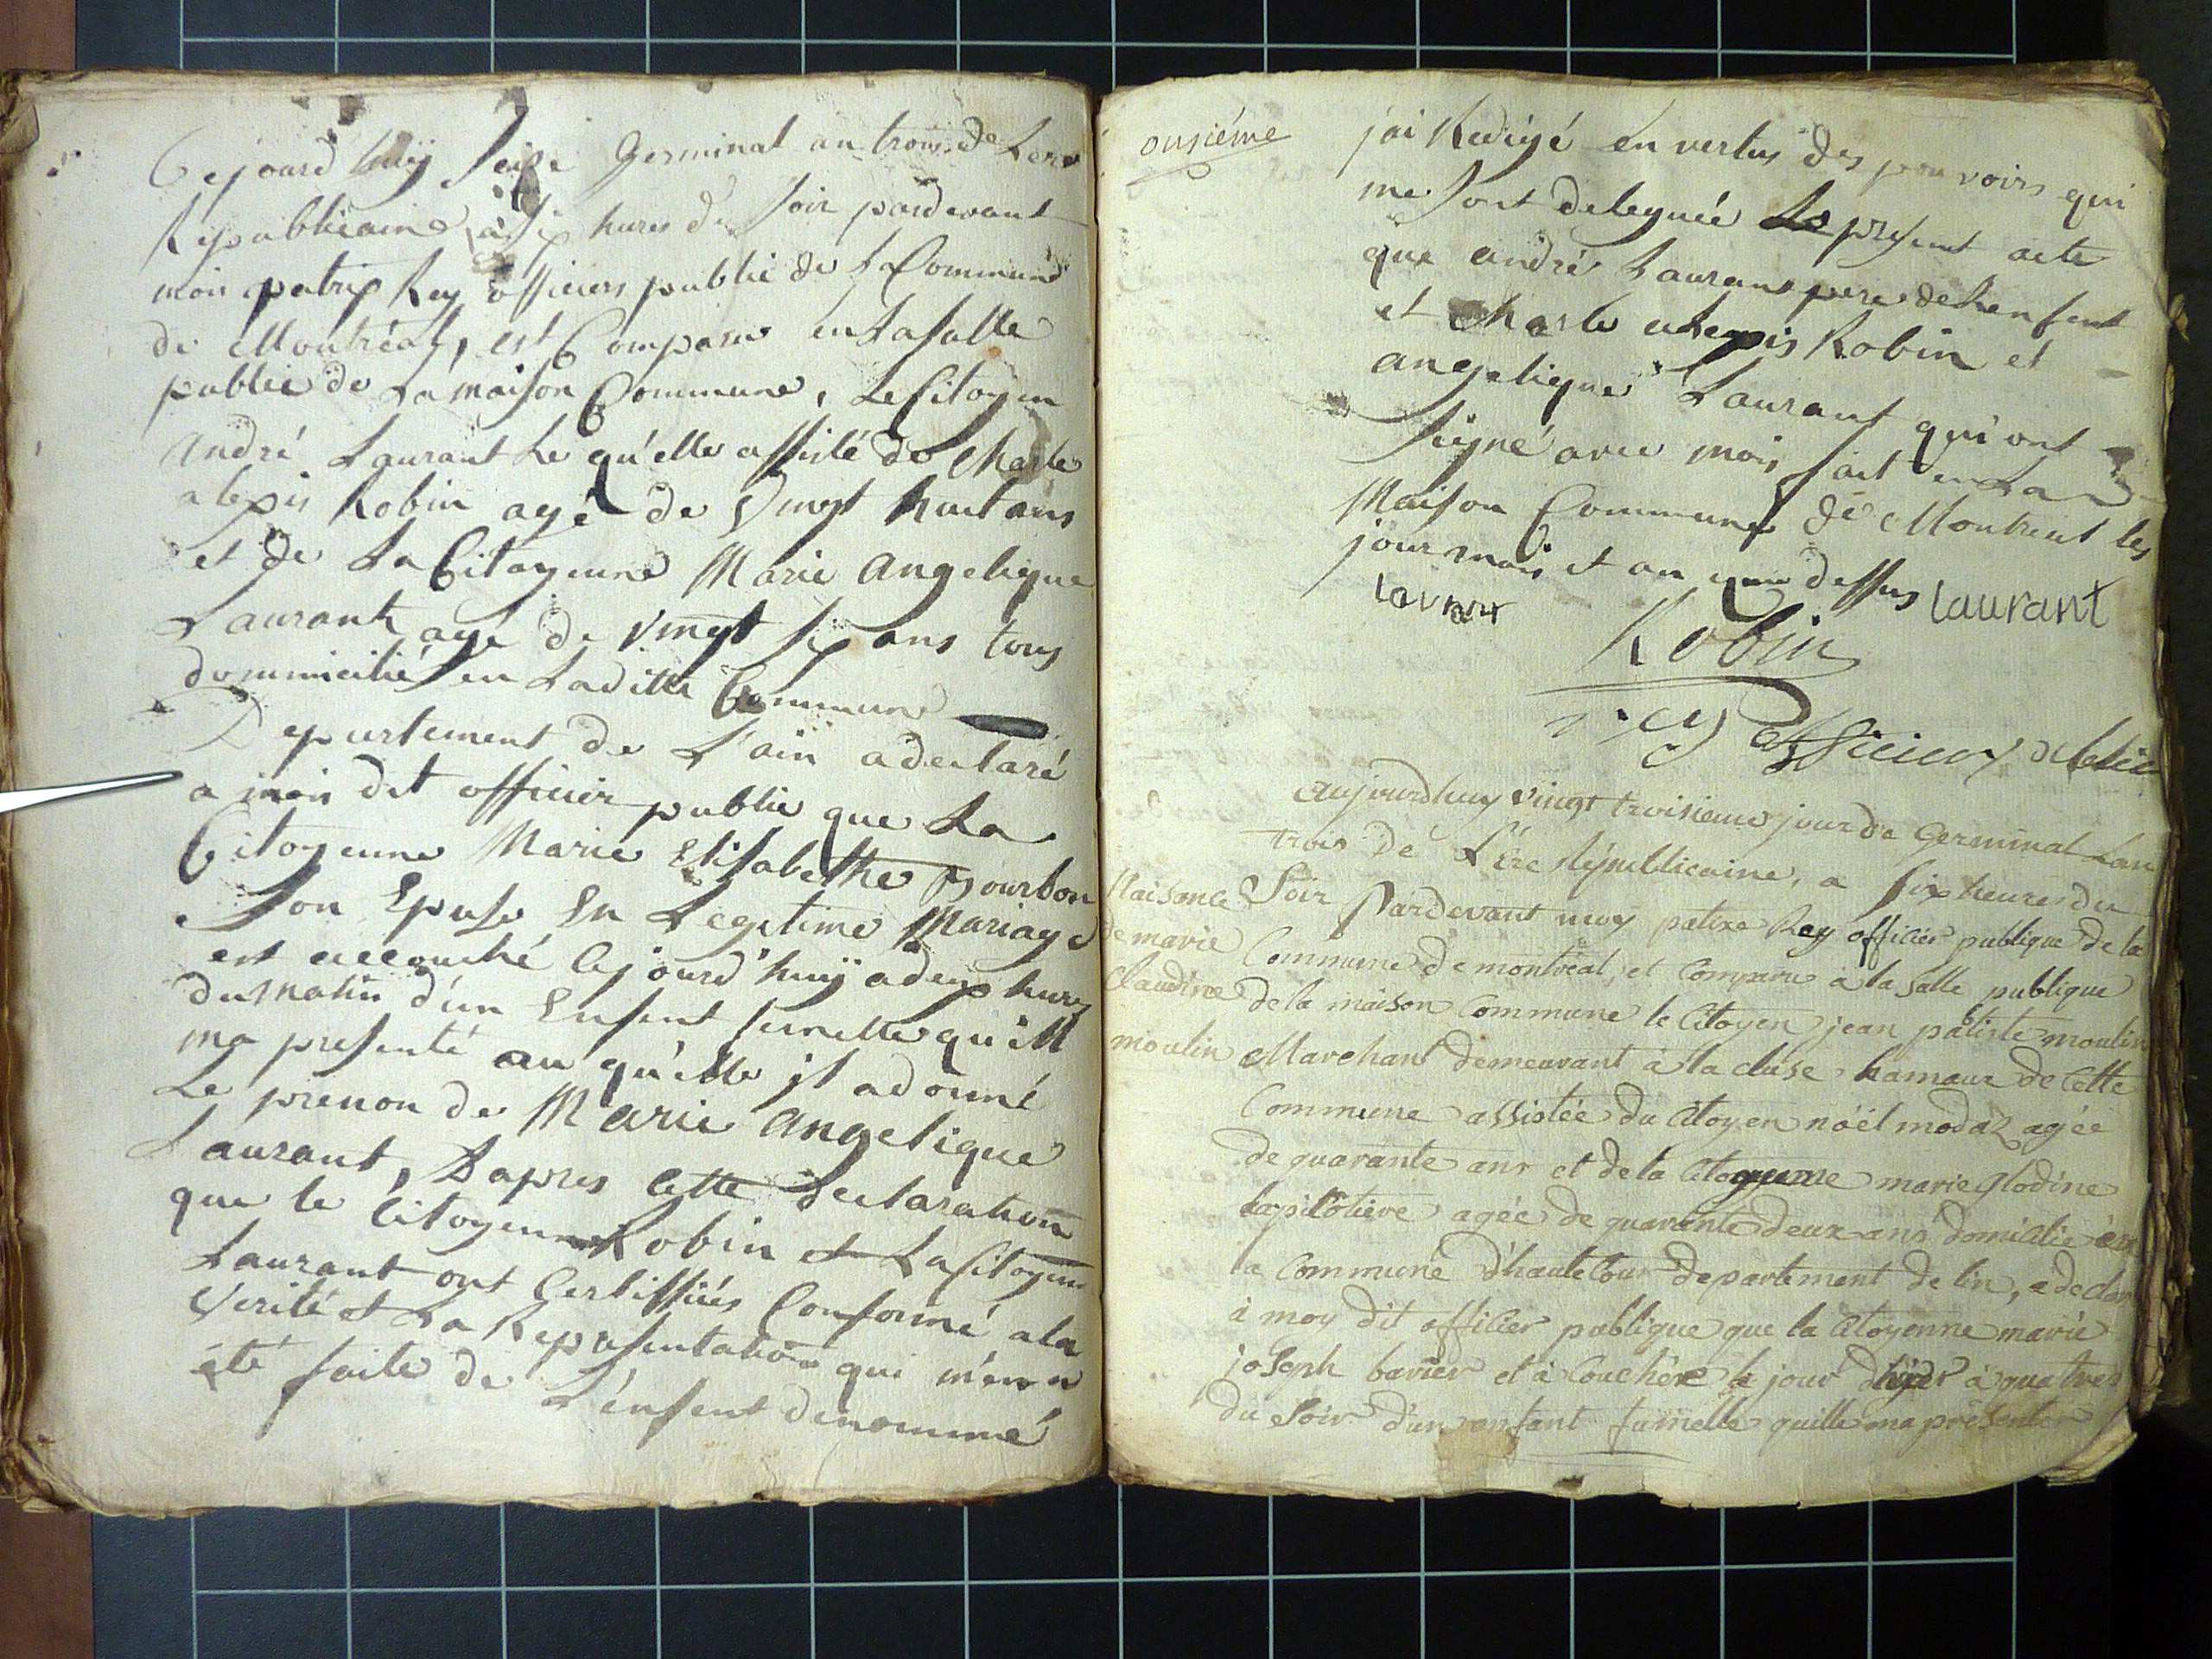 Cejourd'huÿ Seize Germinal an trois de Lere
Republicaine, à Six hures du Soir pardevant
moi patrix Rey officiers public de La Commune
de Montréal, est Comparu en La Salle
public de La maison Commune, Le Citoyen
André Laurant Le qu'elle assisté de Charle
alexis Robin agé de Vingt huit ans
et de La Citoyenne Marie Angelique
Laurant agé de vingt six ans tous
dommicilié en Laditte Commune
Departement de L'ain a declaré
a moi dit officier public que La
Citoyenne Marie Elisabethe Bourbon
Son Epouse En Legitime Mariage
est accouché Cejourd'huÿ a deux hures
du matin d'un Enfent femelle qu'ill
ma presenté au qu'elle jl a donné
Le prenon de Marie Angelique
Laurant, D'apres Cette Declaration
que le Citoyen Robin et La Citoyenne
Laurant ont Certiffiés Conforme a la
Verité et La Representation qui m'en a
été faite de L'énfent denommé
onsiéme
j'ai Redigé en vertus des pouvoirs qui
me Sont deleguée Le present acte
que andré Laurant pere de Lenfent
et Charle alexis Robin et
angelique Laurant qui ont
Signé avec moi fait en La
Maison Commune de Montreal les
jour mois et an que dessus Laurant
Laurant
Robin
Rey officier public
aujourdhuy vingt troisieme jour de Germinal Lan
trois de L'ére Républicaine, a six heures du
Naisance Soir Pardevant moy patrix Rey officier publique de la
de marie Commune de montréal, et Comparu a la Salle publique
Claudine de la maison Commune le Citoyen jean patiste moulin
moulin Marchant demeurant à la cluse hamaux de Cette
Commune assistée du Citoyen noël modaz agée
de quarante ans et de la Citoyenne marie glodine
lapilotiere agée de quarante deux ans domicilié en
la Commune d'hauteCour departement de lin, a declar
à moy dit officier publique que la Citoyenne marie
joseph barier et à Couchére le jour d'hyer à quatres
du Soir d'un enfant fumelle quille ma présenter